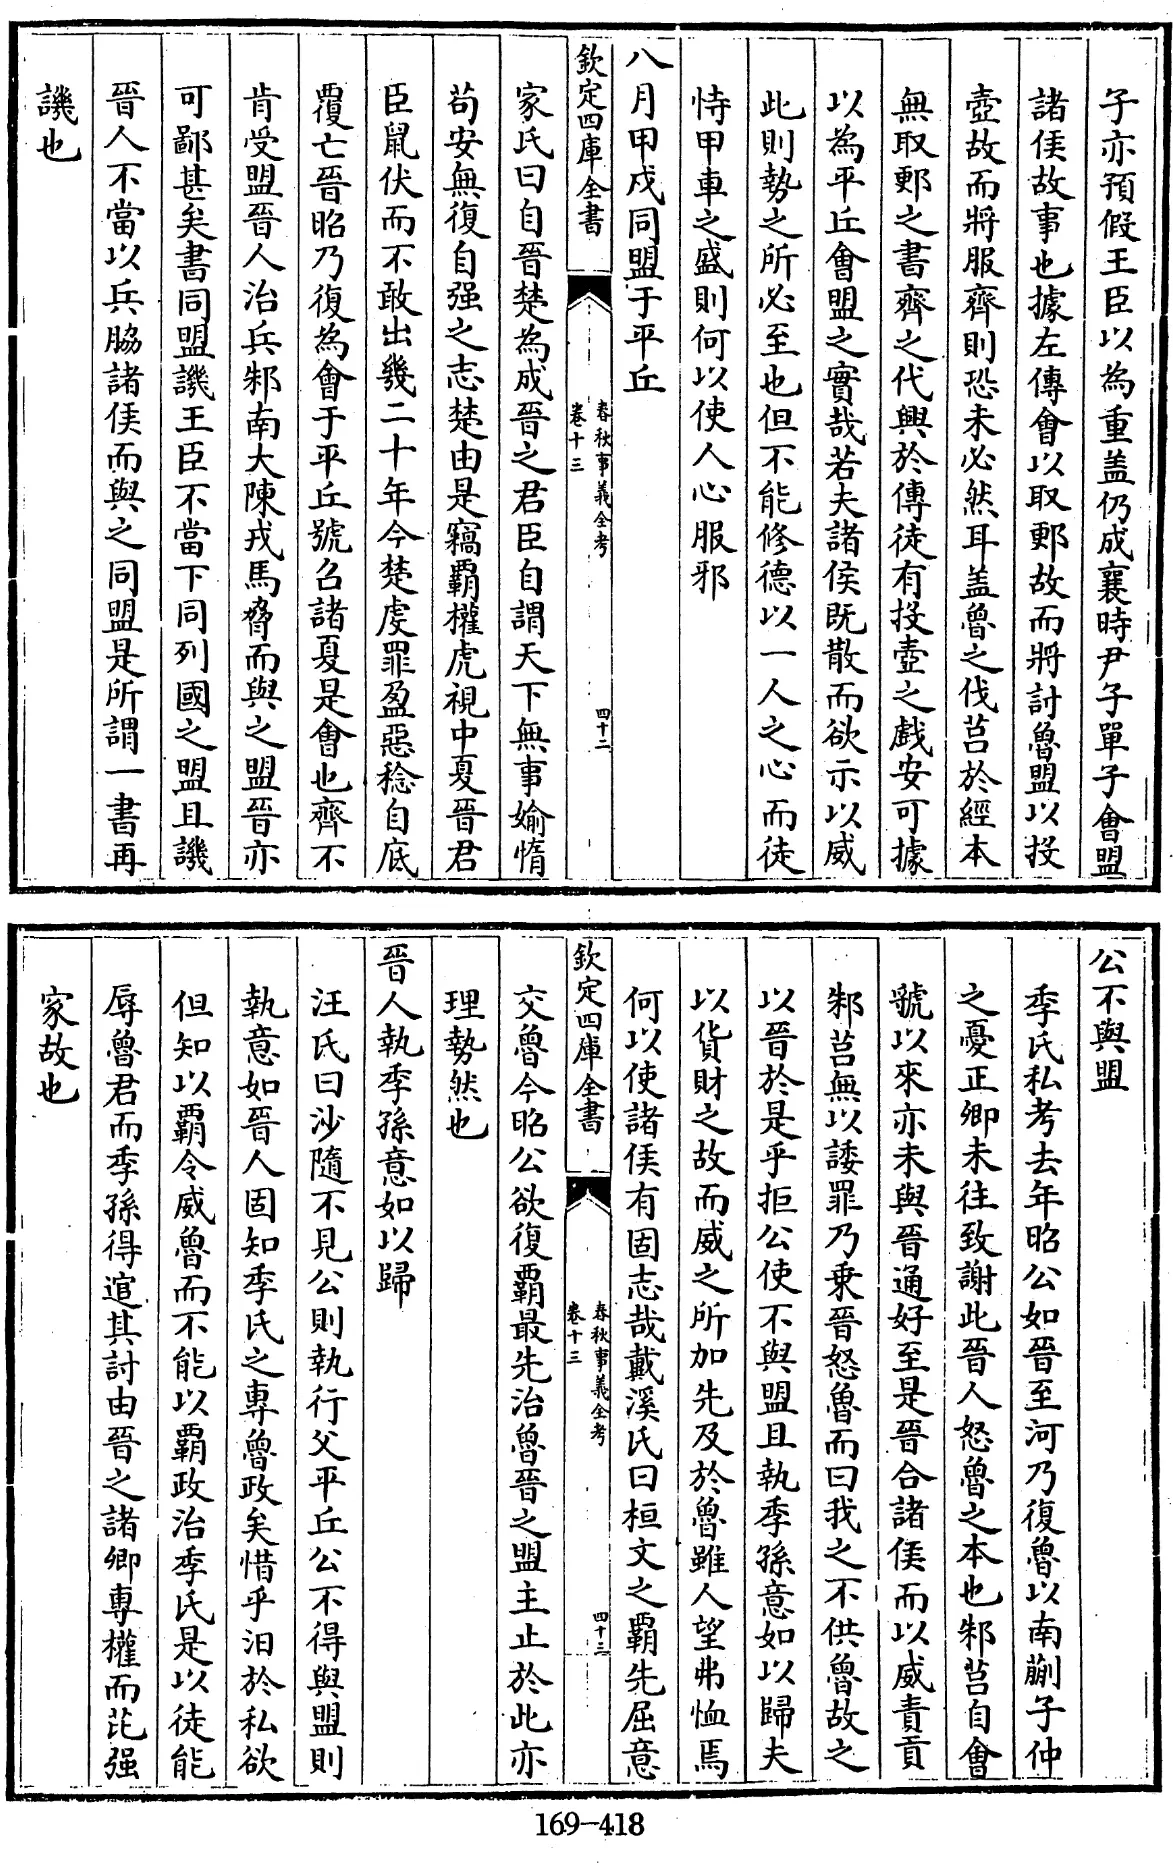 子亦預假王臣以為重盖仍成襄時尹子單子會盟
諸侯故事也據左傳會以取郠故而將討魯盟以投
壺故而將服齊則恐未必然耳盖魯之伐莒於經本
無取郠之書齊之代興於傳徒有投壺之戲安可據
以為平丘會盟之實哉若夫諸侯既散而欲示以威
此則勢之所必至也但不能修德以一人之心而徒
恃甲車之盛則何以使人心服邪
八月甲戍同盟于平丘
欽定四庫全書
春秋事義全考
卷十三
四十二
家氏曰自晉楚為成晉之君臣自謂天下無事媮惰
苟安無復自强之志楚由是竊覇權虎視中夏晉君
臣鼠伏而不敢出幾二十年今楚虔罪盈惡稔自底
覆亡晉昭乃復為會于平丘號召諸夏是會也齊不
肯受盟晉人治兵邾南大陳戎馬脅而與之盟晉亦
可鄙甚矣書同盟譏王臣不當下同列國之盟且譏
晉人不當以兵脇諸侯而與之同盟是所謂一書再
譏也
公不與盟
季氏私考去年昭公如晉至河乃復魯以南蒯子仲
之憂正卿未往致謝此晉人怒魯之本也邾莒自會
虢以來亦未與晉通好至是晉合諸侯而以威責貢
邾莒無以諉罪乃乗晉怒魯而曰我之不供魯故之
以晉於是乎拒公使不與盟且執季孫意如以歸夫
以貨財之故而威之所加先及於魯雖人望弗恤焉
何以使諸侯有固志哉戴溪氏曰桓文之覇先屈意
欽定四庫全書
春秋事義全考
卷十三
四十三
交魯今昭公欲復覇最先治魯晉之盟主止於此亦
理勢然也
晉人執季孫意如以歸
汪氏曰沙隨不見公則執行父平丘公不得與盟則
執意如晉人固知季氏之專魯政矣惜乎汩於私欲
但知以覇令威魯而不能以覇政治季氏是以徒能
辱魯君而季孫得逭其討由晉之諸卿專權而芘强
家故也
169-418